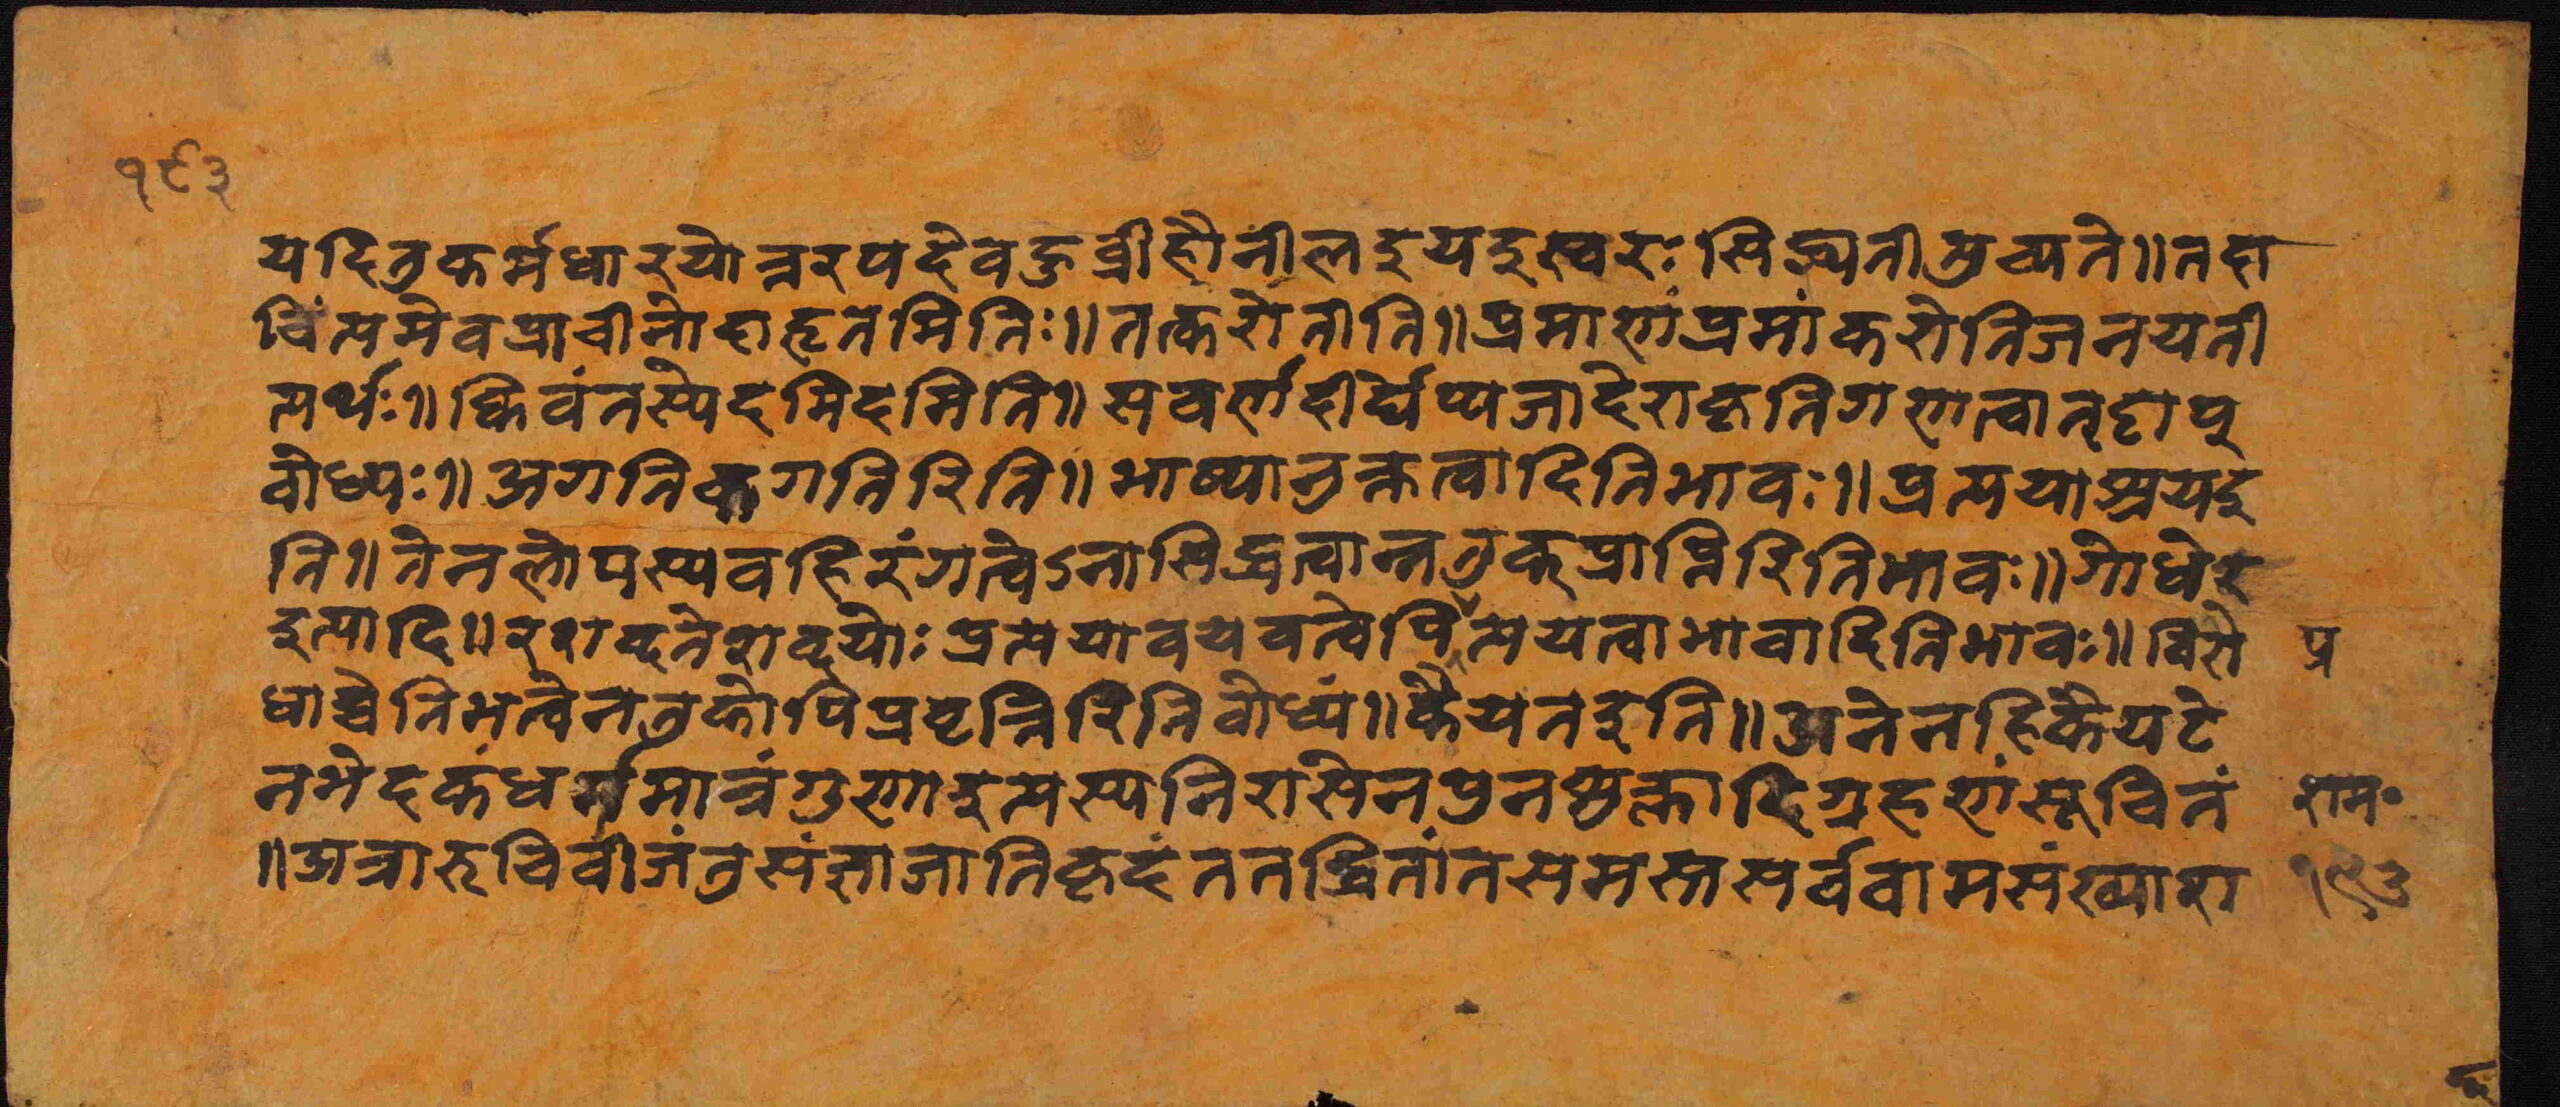 १९३
यदितुकर्मधारयोत्तरपदेवहुव्रीहौनीलइयइस्वरःसिद्ध्यतीत्युच्यते॥तदा
चिंत्यमेवप्राचीनोदाहृतमितिः॥तत्करोतीति॥प्रमाणंप्रमांकरोतिजनयती
त्यर्थः॥किवंतस्येदमिदमिति॥सवर्णदीर्घेप्यजादेराकृतिगणत्वात्टापू
वोध्यः॥अगतिकगतिरिति॥भाष्यानुक्तत्वादितिभावः॥प्रत्ययाश्रयइ
ति॥तेनलोपस्यवहिरंगत्वेऽनासिद्धत्वान्नतुक्प्राप्तिरितिभावः॥गोधेर
इत्यादि॥रशब्दनेशब्दयोःप्रत्ययावयवत्वेपित्ययत्वाभावादितिभावः॥विरो प्र
धाच्चेतिभत्वेनतुकोपिप्रवृत्तिरितिवोध्यं॥कैयतइति॥अनेनहिकैयटे
नभेदकंधर्ममात्रंगुणइत्यस्यनिरासेनप्रनष्शुक्लादिग्रहणंसूचितं रामः
॥अत्रारुचिवीजंतुसंज्ञाजातिकृदंततद्धितांतसमस्तसर्ववामसंख्याश १९३